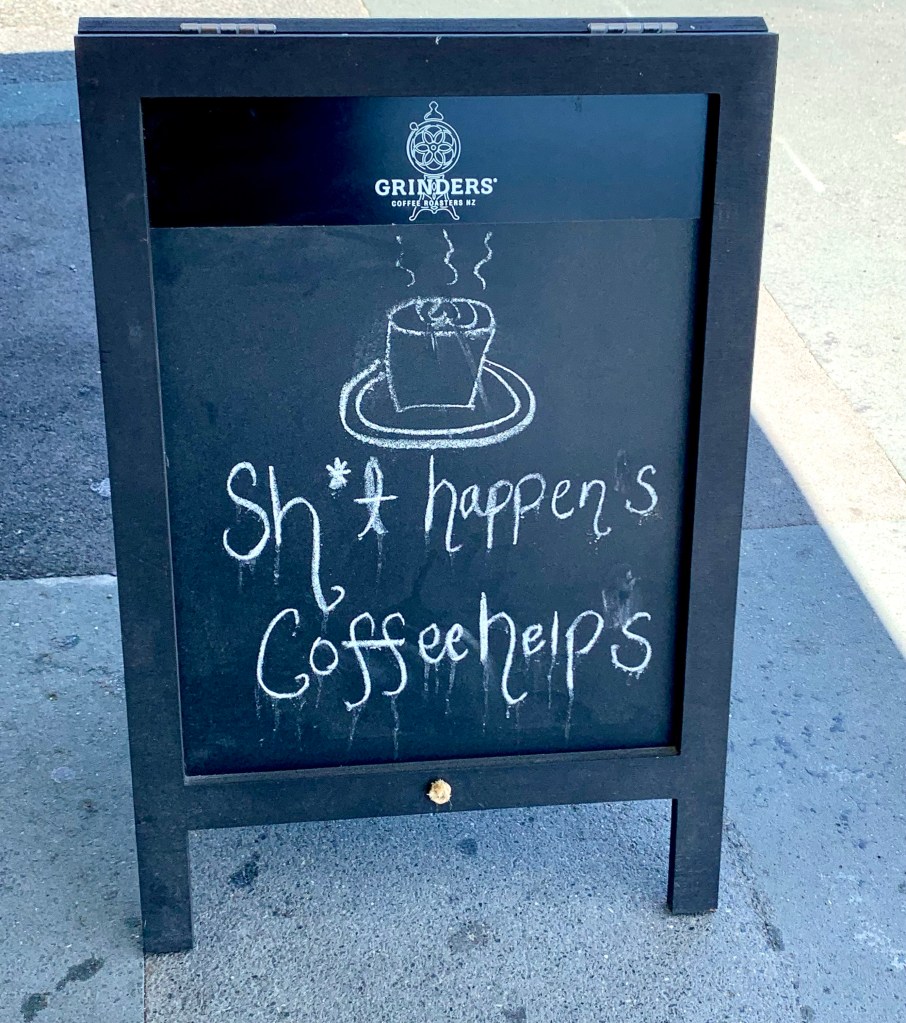 GRINDERS
COFFEE ROASTERS NZ
Sh*t happen's
Coffee help's